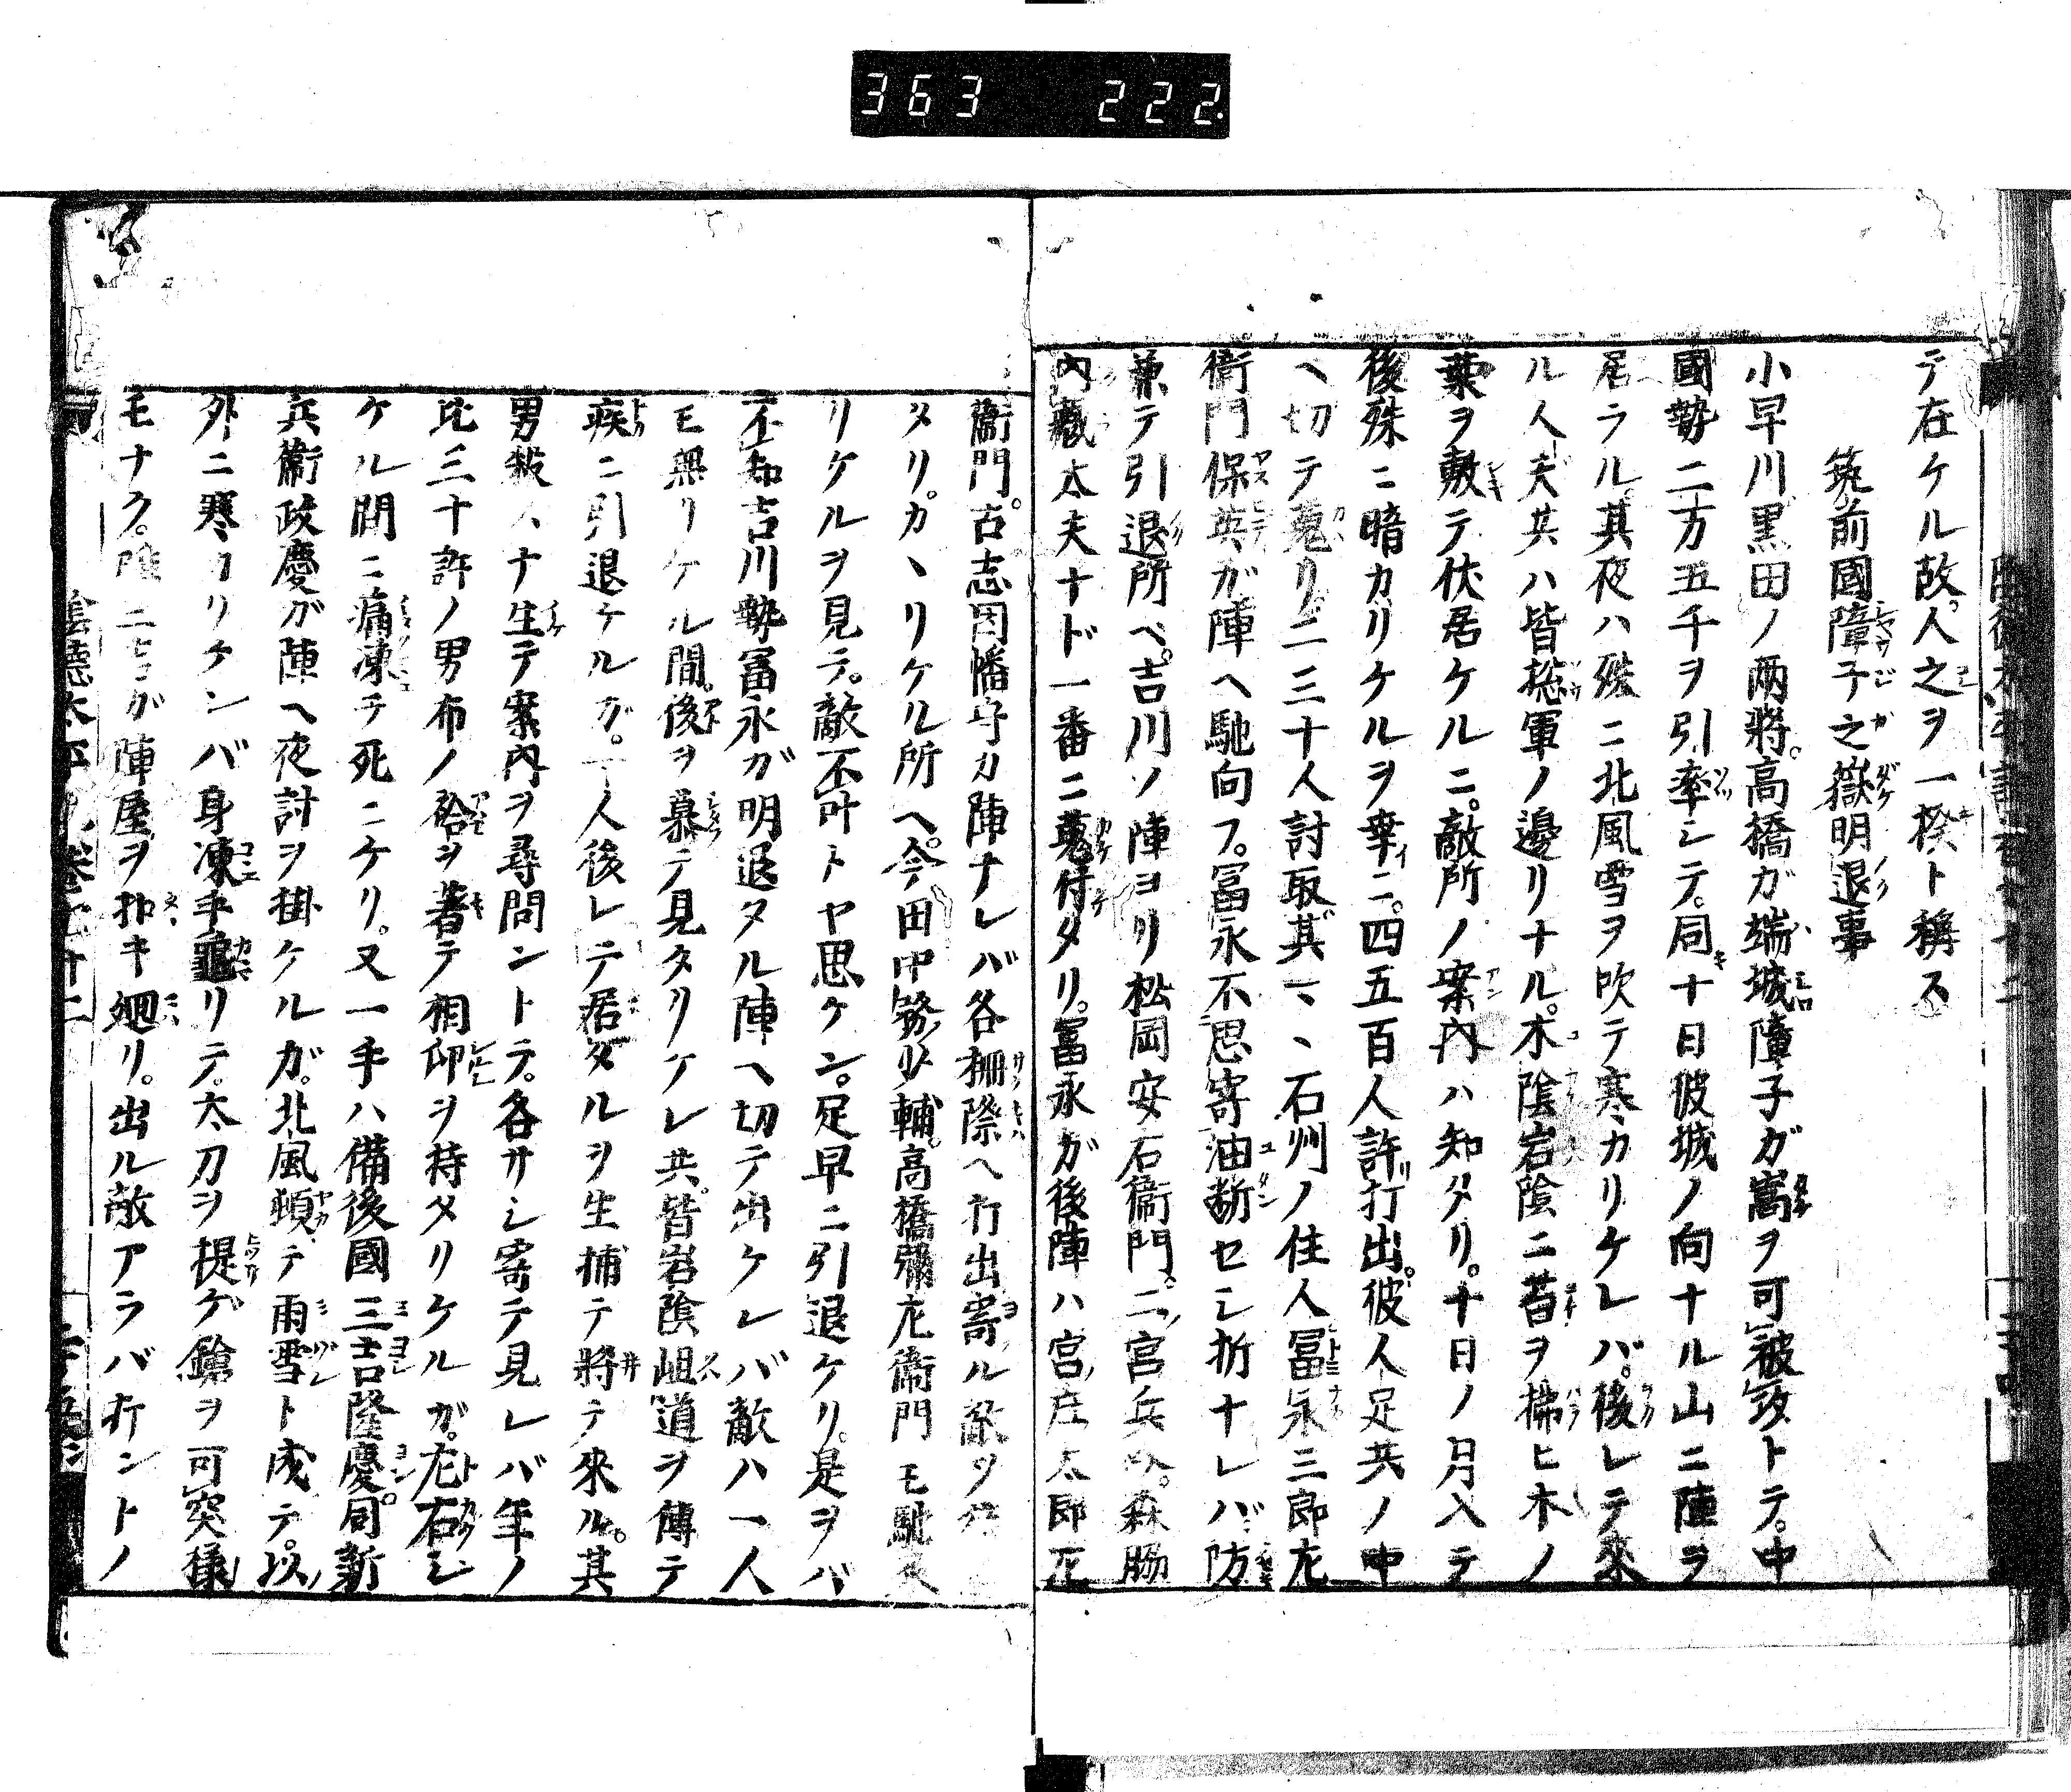 363 222
テ在ケル故。人之ヲ一揆ト稱ス
筑前國障子之嶽明退事
小早川黒田ノ兩將。高橋ガ端城障子ガ嵩ヲ可被攻トテ。中
國勢二万五千ヲ引率シテ。同十日彼城ノ向ナル山ニ陣ヲ
居ラル。其夜ハ殊ニ北風雪ヲ吹テ寒カリケレバ。後レテ來
ル人夫共ハ皆惣軍ノ邊リナル。木陰岩陰ニ苔ヲ掃ヒ木ノ
葉ヲ敷テ伏居ケルニ。敵所ノ案内ハ知タリ。十日ノ月入テ
後殊ニ暗カリケルヲ幸ニ。四五百人許打出。彼人足共ノ中
ヘ切テ蒐リ二三十人討取。其ヽヽ石州ノ住人冨永三郎左
衛門保英ガ陣ヘ馳向フ。冨永不思寄油断セシ折ナレバ防
兼テ引退所ヘ。吉川ノ陣ヨリ松岡安右衞門。二宮兵介。森脇
内藏太夫ナド一番ニ蒐付タリ。冨永ガ後陣ハ宮庄太郎左
衞門。古志因幡守カ陣ナレバ各柵際ヘ打出寄ル敵ヲ待
タリ。カヽリケル所ヘ。今田中務少輔。高橋彌左衞門モ馳來
リケルヲ見テ。敵不叶トヤ思ケン。足早ニ引退ケリ。是ヲバ
不知吉川勢冨永ガ明退タル陣ヘ切テ出ケレバ敵ハ一人
モ無リケル間。後ヲ慕テ見タリケレ共。皆岩陰岨道ヲ傳テ
疾ニ引退ケルガ。一人後レテ居タルヲ生捕テ將テ來ル。其
男殺サナ生テ案内ヲ尋問ントテ。各サシ寄テ見レバ年ノ
比三十許ノ男布ノ袷ヲ著テ相印ヲ持タリケルガ。左右シ
ケル間ニ痛凍テ死ニケリ。又一手ハ備後國三吉隆慶。同新
兵衞政慶ガ陣ヘ夜討ヲ掛ケルガ。北風頻テ雨雪ト成テ。以
外ニ寒カリケンバ身凍手龜リテ。太刀ヲ提ゲ鎗ヲ可突樣
モナク。唯三吉ガ陣屋ヲ扣キ廻リ。出ル敵アラバ打ントノ
陰德太平記卷七十二